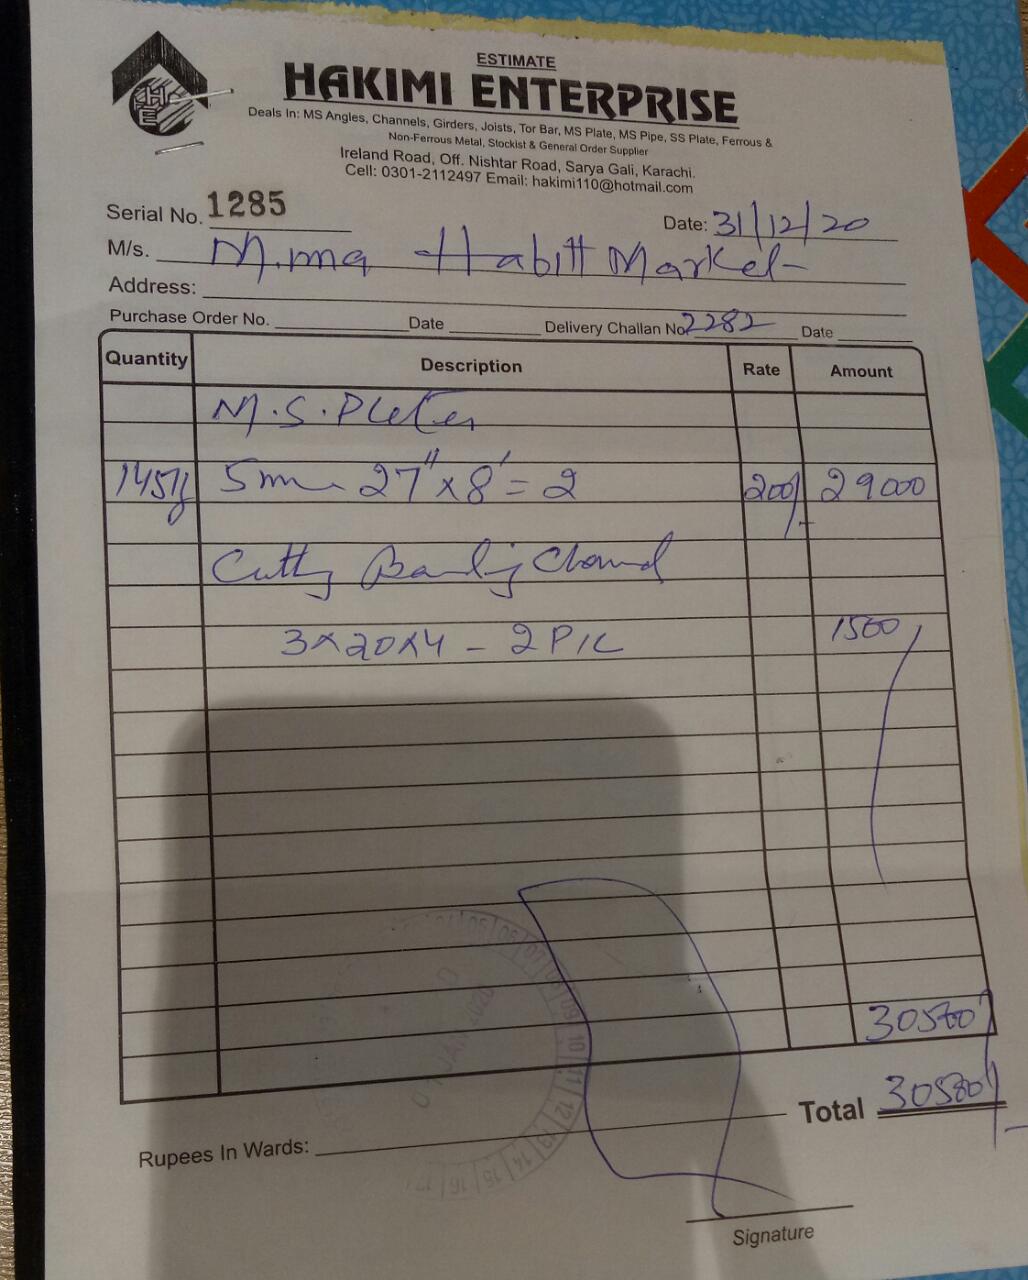 ESTIMATE
HAKIMI ENTERPRISE
HE
Deals In: MS Angles, Channels, Girders, Joists, Tor Bar, MS Plate, MS Pipe, SS Plate, Ferrous &
Non-Ferrous Metal, Stockist & General Order Supplier
Ireland Road, Off. Nishtar Road, Sarya Gali, Karachi.
Cell: 0301-2112497 Email: hakimi110@hotmail.com
Serial No. 1285 Date: 31/12/20
M/s. Habitt Market
Address:
Purchase Order No. Date Delivery Challan No 2282 Date
Quantity Description Rate Amount
M.S. Plates
5mm 27" x 8' = 2 200/- 29000
3x20x4 - 2 Pic 1500
30500/
Total 30500/-
Rupees In Wards:
Signature